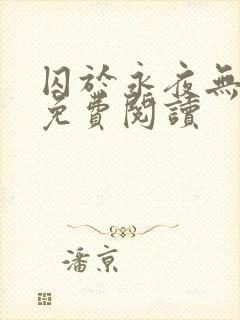 囚於永夜無
免費閱讀
潘京